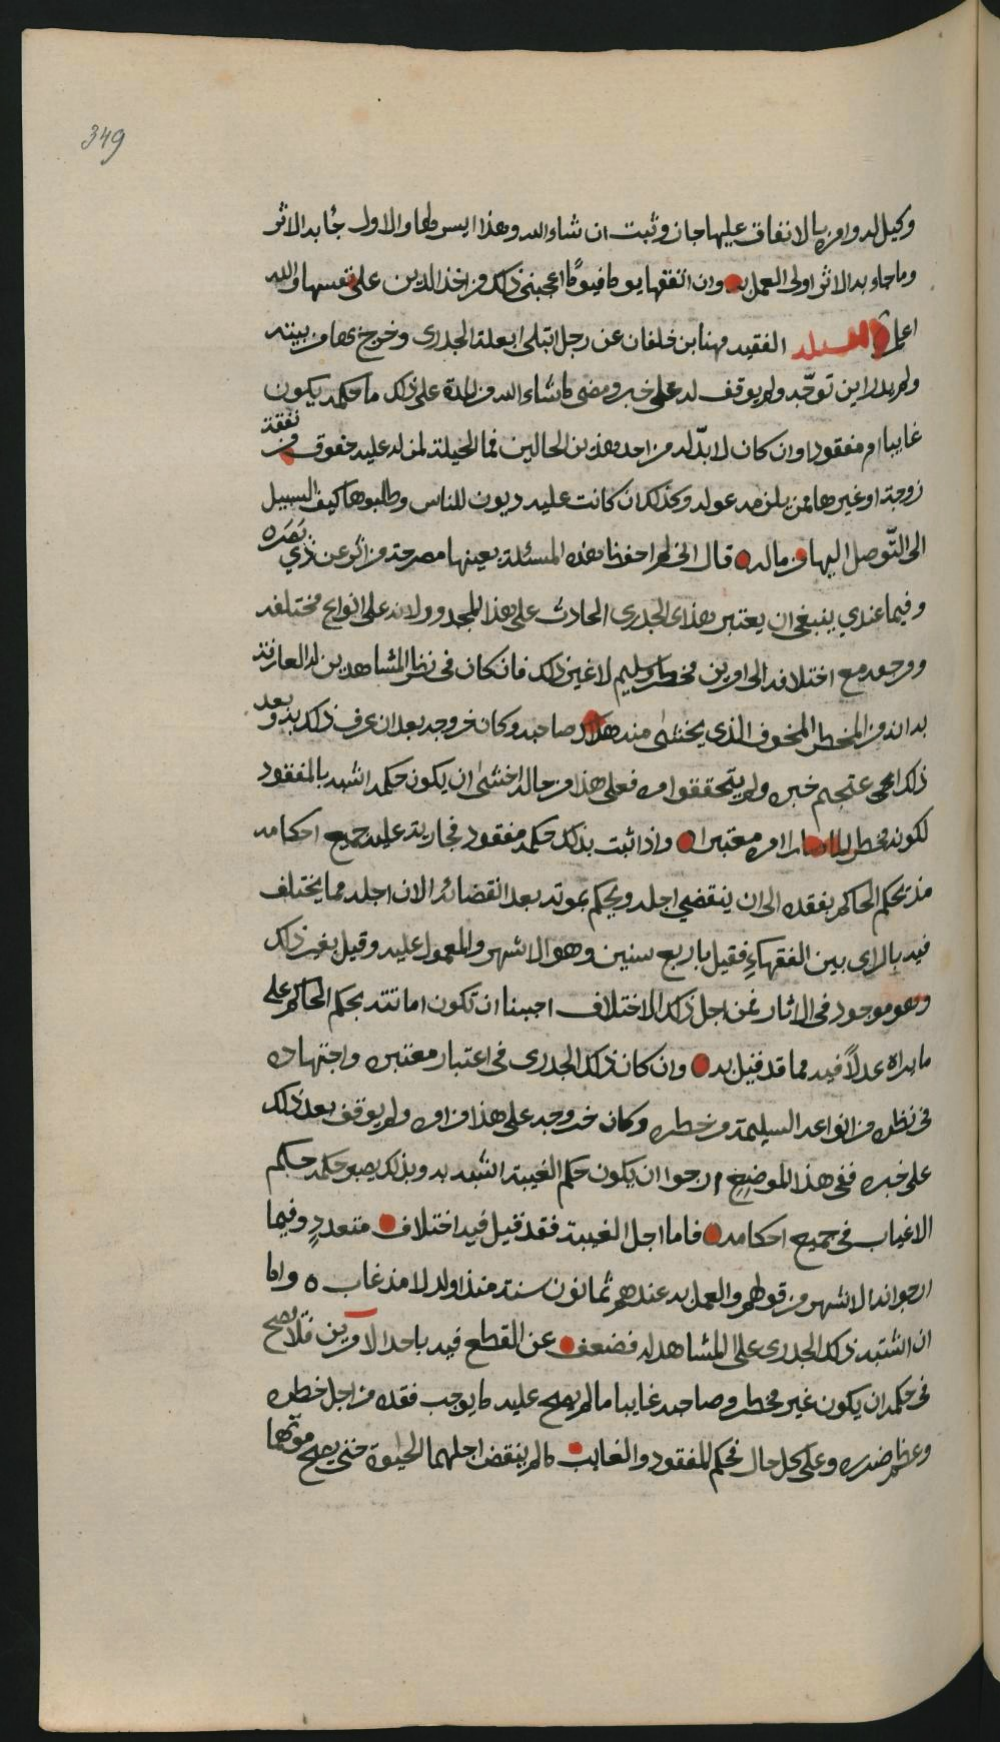 349
وكيل له وامره بالانفاق عليها جاز وثبت ان شاء الله وهذا ايسر لها والاول جاء به الاثر
وما جاء به الاثر اولى العمل به وان انفقها يوما فيوما اعجبني ذلك من اخذ الدين على نفسها والله
اعلم مسئله الفقيه مهنا بن خلفان عن رجل ابتلى بعلة الجدرى وخرج من بيته
ولم يدر اين توجّه ولم يوقف له على خبر ومضى ما شاء الله من المدة على ذلك ما حكمه يكون
غايبا ام مفقودا وان كان لا بدّ له من احد هذين الحالين فما الحيلة لمن له عليه حقوق من نفقة
زوجة او غيرها ممن يلزمه عوله وكذلك ان كانت عليه ديون للناس وطلبوها كيف السبيل
الى التّوصل اليها من ماله قال انى لم احفظ هذه المسئلة بعينها مصرحة من اثر عن ذي بصره
وفيما عندي ينبغي ان يعتبر هذا الجدرى الحادث على هذا المجدور لانه على انواع مختلفه
ومرجعه مع اختلافه الى امرين مخطر وسليم لا غير ذلك فان كان فى نظر المشاهدين له العارفة
به انه من المخطر المخوف الذي يخشى منه هلاك صاحبه وكان خروجه بعد ان عرف ذلك به وبعد
ذلك خبره ولم يتحققوا امره فعلى هذا من حاله اخشى ان يكون حكمه اشبه بالمفقود
لكونه مخطرا امره معتبرا واذا ثبت بذلك حكمه مفقود فجارية عليه جميع احكامه
مذ يحكم الحاكم بفقده الى ان ينقضي اجله ويحكم بموته بعد انقضائه الا ان اجله مما يختلف
فيه بالراى بين الفقهاء فقيل باربع سنين وهو الاشهر والمعمول عليه وقيل بغير ذلك
وهو موجود فى الاثار فمن اجل ذلك الاختلاف احببنا ان تكون اماتته بحكم الحاكم على
ما يراه عدلا فيه مما قد قيل به وان كان ذلك الجدرى فى اعتبار معتبره واجتهاده
فى نظره من انواعه السليمة من خطره وكان خروجه على هذا من امره ولم يوقف بعد ذلك
على خبره ففي هذا الموضع ارجوا ان يكون حكم الغيبة اشبه به وبذلك يصير حكمه حكم
الاغياب فى جميع احكامه فاما اجل الغيبة فقد قيل فيه اختلاف متعدد وفيما
ارجو انه الاشهر من قولهم والعمل به عندهم ثمانون سنة منذ اولد لا مذ غاب ه واما
ان اشتبه ذلك الجدرى على المشاهد له فضعف عن القطع فيه باحد الامرين فلا يصح
فى حكمه ان يكون غير مخطر وصاحبه غايبا ما لم يصح عليه ما يوجب فقده من اجل خطره
وعظم ضرره وعلى كل حال فحكم المفقود والغايب ما لم ينقض اجلهما الحيوة حتى يصح موتهما